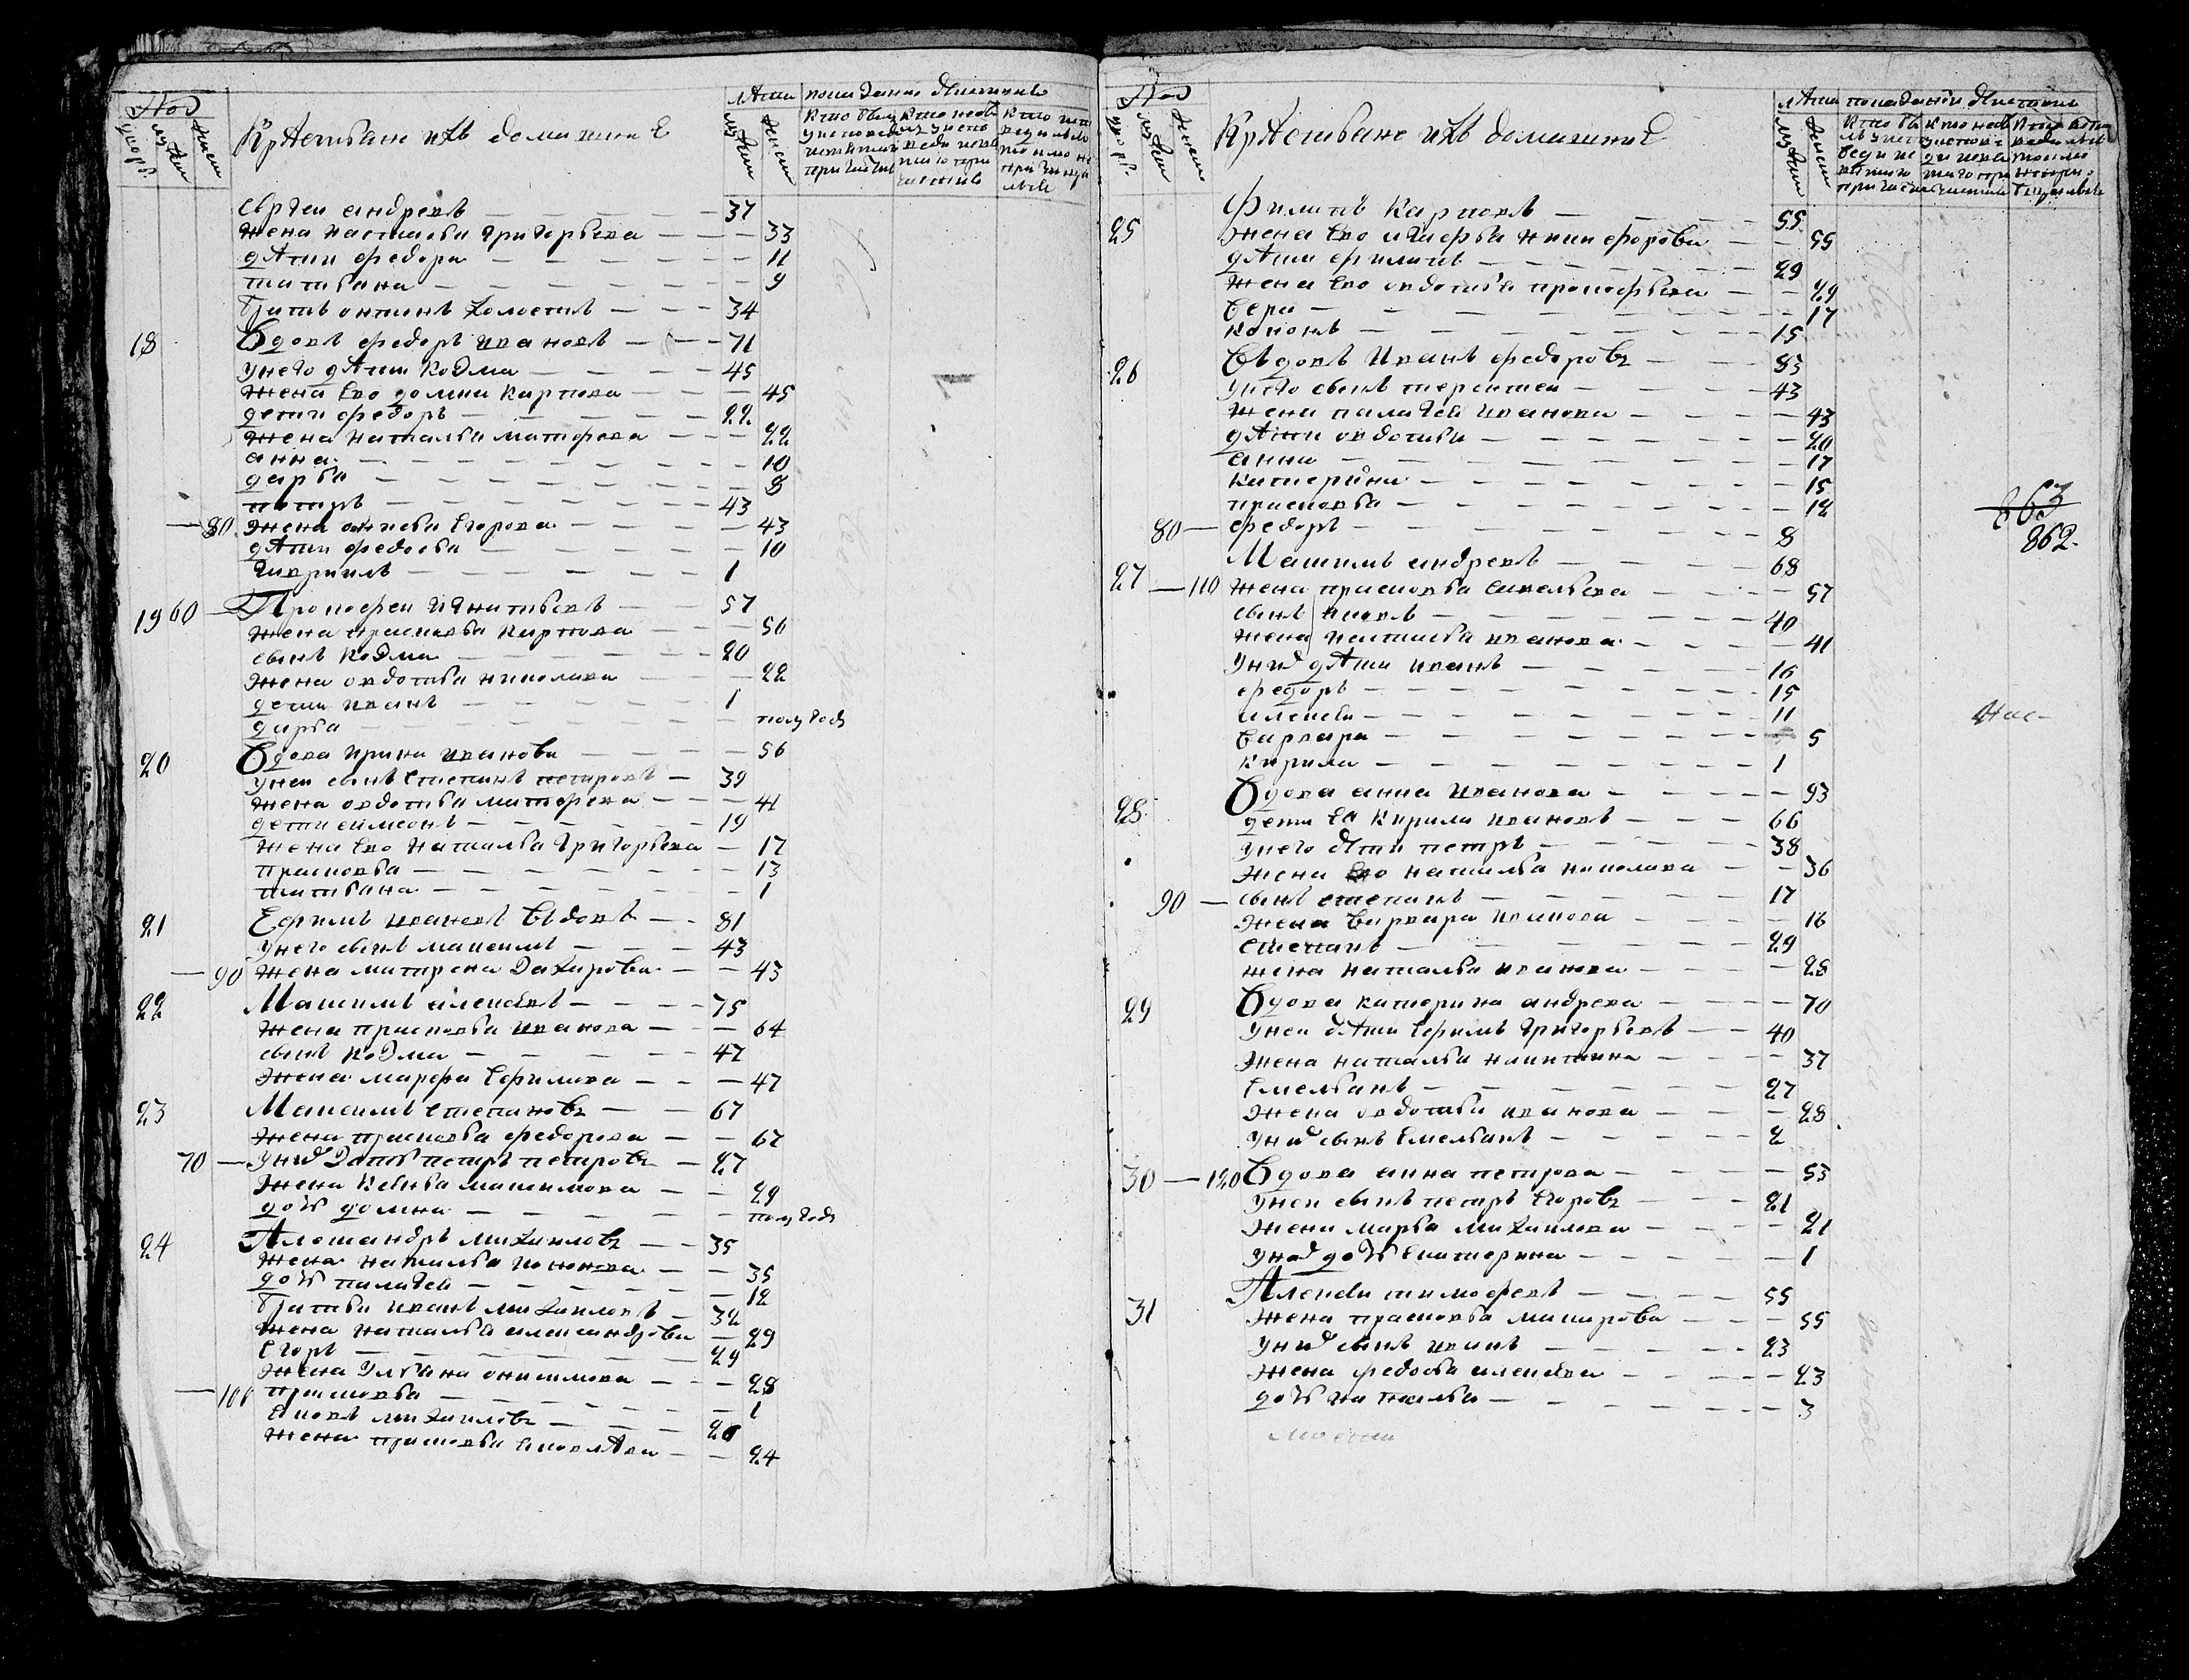 крестьяне ихъ домашние
сергеи андревъ — 37
жена настасья григорьева — 33
дѣти федора — 11
татьяна — 9
братъ антипъ холостъ — 34
18 вдовъ федоръ ивановъ — 71
унего дѣти козма — 45
жена ево домна карпова — 45
дети федоръ — 22
жена наталья матфева — 22
анна — 10
дарья — 8
петръ — 43
—80 жена анисья егорова — 43
дѣти федосья — 10
гаврилъ — 1
19 60 — Прокофеи игнатьевъ — 57
жена прасковья карпова — 56
сынъ козма — 20
жена овдотья николаева — 22
дети иванъ — 1
дарья — полугода
20 вдова ирина иванова — 56
унеи сынъ степанъ петровъ — 39
жена овдотья матфева — 41
дети симеонъ — 19
жена ево наталья григорьева — 17
прасковья — 13
татьяна — 1
21 Ефимъ ивановъ вдовъ — 81
унего сынъ максимъ — 43
—90 жена матрена захарова — 43
22 Максимъ алексевъ — 75
жена прасковья иванова — 64
сынъ козма — 47
жена марфа ефимова — 47
23 Максимъ степановъ — 67
жена прасковья федорова — 67
70 — унихъ зять петръ петровъ — 27
жена ксенья максимова — 29
дочь домна — полугода
24 Александръ михаиловъ — 35
жена наталья кононова — 35
дочь палагея — 12
братья иванъ михаиловъ — 32
жена наталья александрова — 29
егоръ — 29
жена ульяна онисимова — 28
—100 прасковья — 1
яковъ михаиловъ — 26
жена прасковья яковлѣва — 24
крестьяне ихъ домашние
25 Филипъ карповъ — 55
жена ево никифорова — 55
дѣти филипъ — 29
жена ево овдотья прокофьева — 29
вера — 17
кононъ — 15
26 вдовъ иванъ федоровъ — 83
унего сынъ терентеи — 43
жена палагея иванова — 43
дѣти овдотья — 20
анна — 17
катерина — 15
прасковья — 12
80 — федоръ — 8
863
862.
27 Максимъ андревъ — 68
—110 жена прасковья савельева — 57
сынъ яковъ — 40
жена настасья иванова — 41
унихъ дѣти иванъ — 16
федоръ — 15
алексеи — 11
варвара — 5
кирила — 1
28 вдова анна иванова — 93
дети ея кирила ивановъ — 66
унего дѣти петръ — 38
жена ево наталья николаева — 36
90 — сынъ степанъ — 17
жена варвара иванова — 16
степанъ — 29
жена наталья иванова — 28
29 вдова катерина андрева — 70
унеи дѣти ефимъ григорьевъ — 40
жена наталья никитина — 37
емельянъ — 27
жена овдотья иванова — 28
унихъ сынъ емельянъ — 2
30 —120 вдова анна петрова — 53
унеи сынъ петръ егоровъ — 21
жена марья михаилова — 21
унихъ дочь екатерина — 1
31 Алексеи тимофеевъ — 55
жена прасковья макарова — 55
унихъ сынъ иванъ — 23
жена федосья алексева — 23
дочь наталья — 3